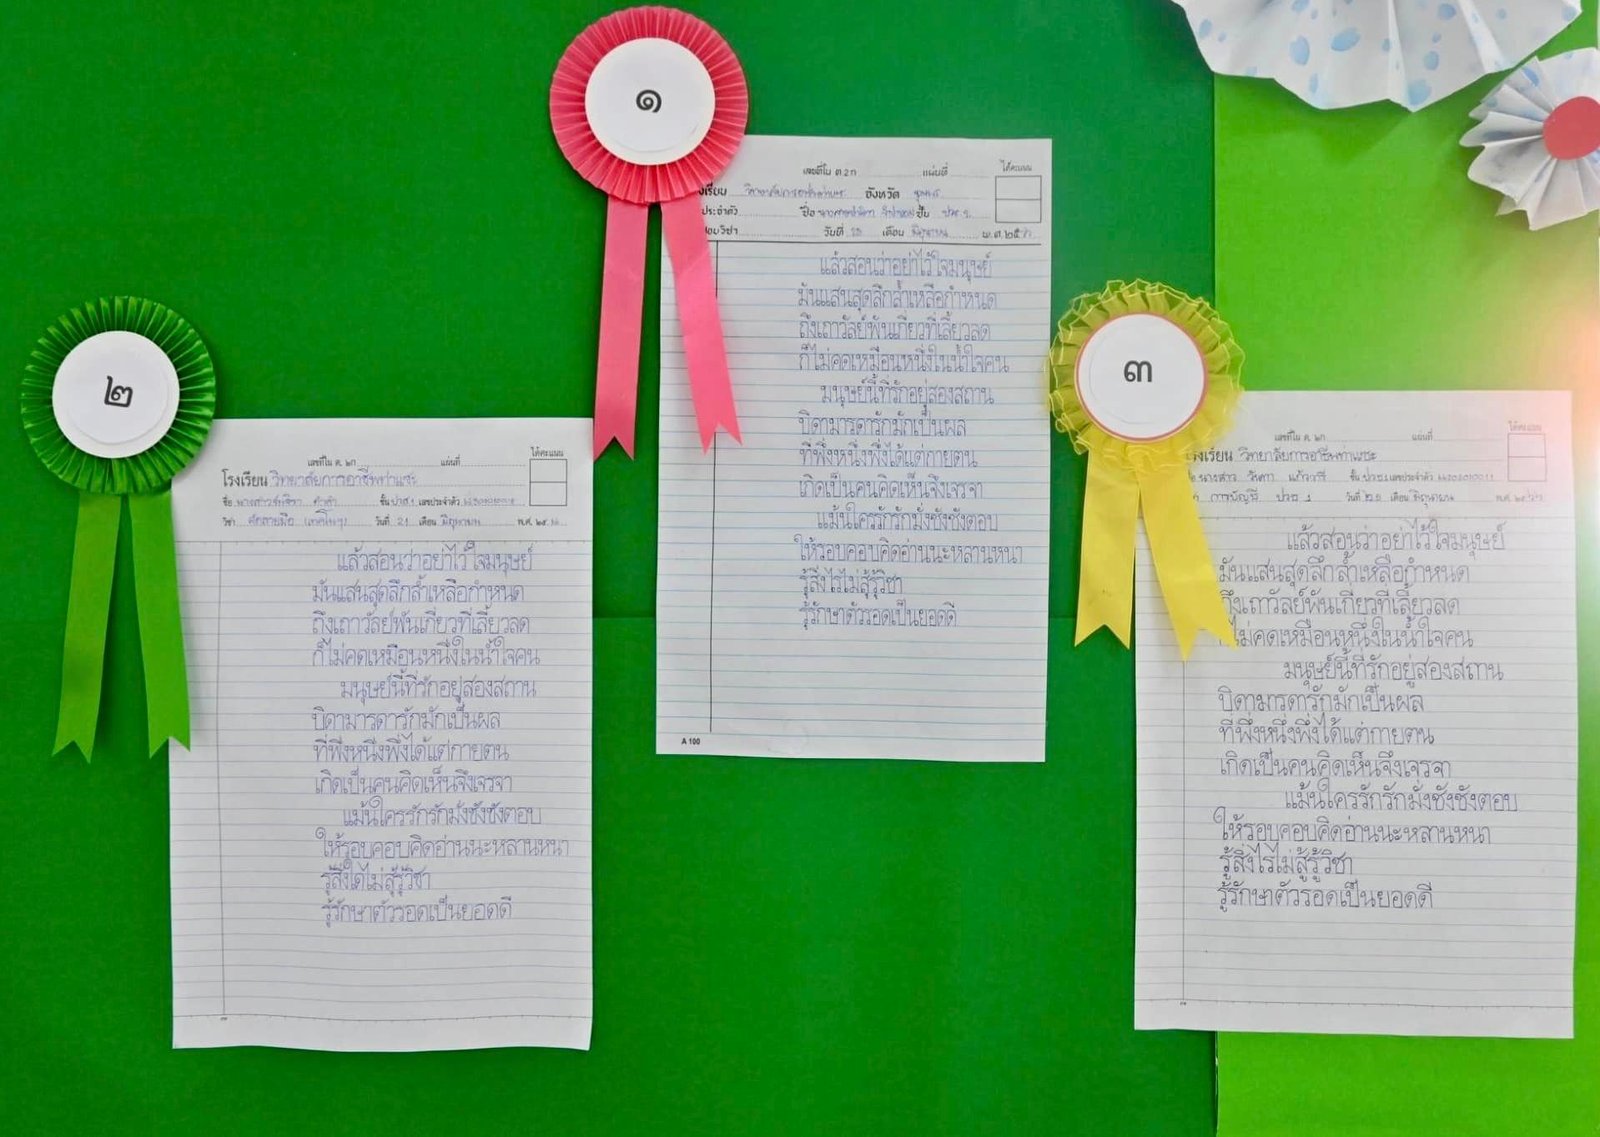 ๑
เลขที่ใบ ต.๒ก แผ่นที่ ได้คะแนน
จังหวัด ชุมพร
ประจำตัว ชื่อ ชั้น ปวช.
สอบวิชา วันที่ เดือน มิถุนายน พ.ศ.๒๕
แล้วสอนว่าอย่าไว้ใจมนุษย์
มันแสนสุดลึกล้ำเหลือกำหนด
ถึงเถาวัลย์พันเกี่ยวที่เลี้ยวลด
ก็ไม่คดเหมือนหนึ่งในน้ำใจคน
มนุษย์นี้ที่รักอยู่สองสถาน
บิดามารดารักมักเป็นผล
ที่พึ่งหนึ่งพึ่งได้แต่กายตน
เกิดเป็นคนคิดเห็นจึงเจรจา
แม้นใครรักรักมั่งชังชังตอบ
ให้รอบคอบคิดอ่านนะหลานหนา
รู้สิ่งไรไม่สู้รู้วิชา
รู้รักษาตัวรอดเป็นยอดดี
A 100
๒
เลขที่ใบ ต. ๒ก แผ่นที่ ได้คะแนน
โรงเรียน วิทยาลัยการอาชีพท่าแซะ
ชื่อ ชั้น ปวส.1 เลขประจำตัว
วิชา คัดลายมือ วันที่ 21 เดือน มิถุนายน พ.ศ. ๒๕
แล้วสอนว่าอย่าไว้ใจมนุษย์
มันแสนสุดลึกล้ำเหลือกำหนด
ถึงเถาวัลย์พันเกี่ยวที่เลี้ยวลด
ก็ไม่คดเหมือนหนึ่งในน้ำใจคน
มนุษย์นี้ที่รักอยู่สองสถาน
บิดามารดารักมักเป็นผล
ที่พึ่งหนึ่งพึ่งได้แต่กายตน
เกิดเป็นคนคิดเห็นจึงเจรจา
แม้นใครรักรักมั่งชังชังตอบ
ให้รอบคอบคิดอ่านนะหลานหนา
รู้สิ่งใดไม่สู้รู้วิชา
รู้รักษาตัวรอดเป็นยอดดี
๓
เลขที่ใบ ต. ๒ก แผ่นที่ ได้คะแนน
โรงเรียน วิทยาลัยการอาชีพท่าแซะ
นางสาว วันดา แก้วจรี ชั้น เลขประจำตัว
การบัญชี ปวช 1 วันที่ 20 เดือน มิถุนายน พ.ศ. ๒๕
แล้วสอนว่าอย่าไว้ใจมนุษย์
มันแสนสุดลึกล้ำเหลือกำหนด
ถึงเถาวัลย์พันเกี่ยวที่เลี้ยวลด
ก็ไม่คดเหมือนหนึ่งในน้ำใจคน
มนุษย์นี้ที่รักอยู่สองสถาน
บิดามารดารักมักเป็นผล
ที่พึ่งหนึ่งพึ่งได้แต่กายตน
เกิดเป็นคนคิดเห็นจึงเจรจา
แม้นใครรักรักมั่งชังชังตอบ
ให้รอบคอบคิดอ่านนะหลานหนา
รู้สิ่งไรไม่สู้รู้วิชา
รู้รักษาตัวรอดเป็นยอดดี